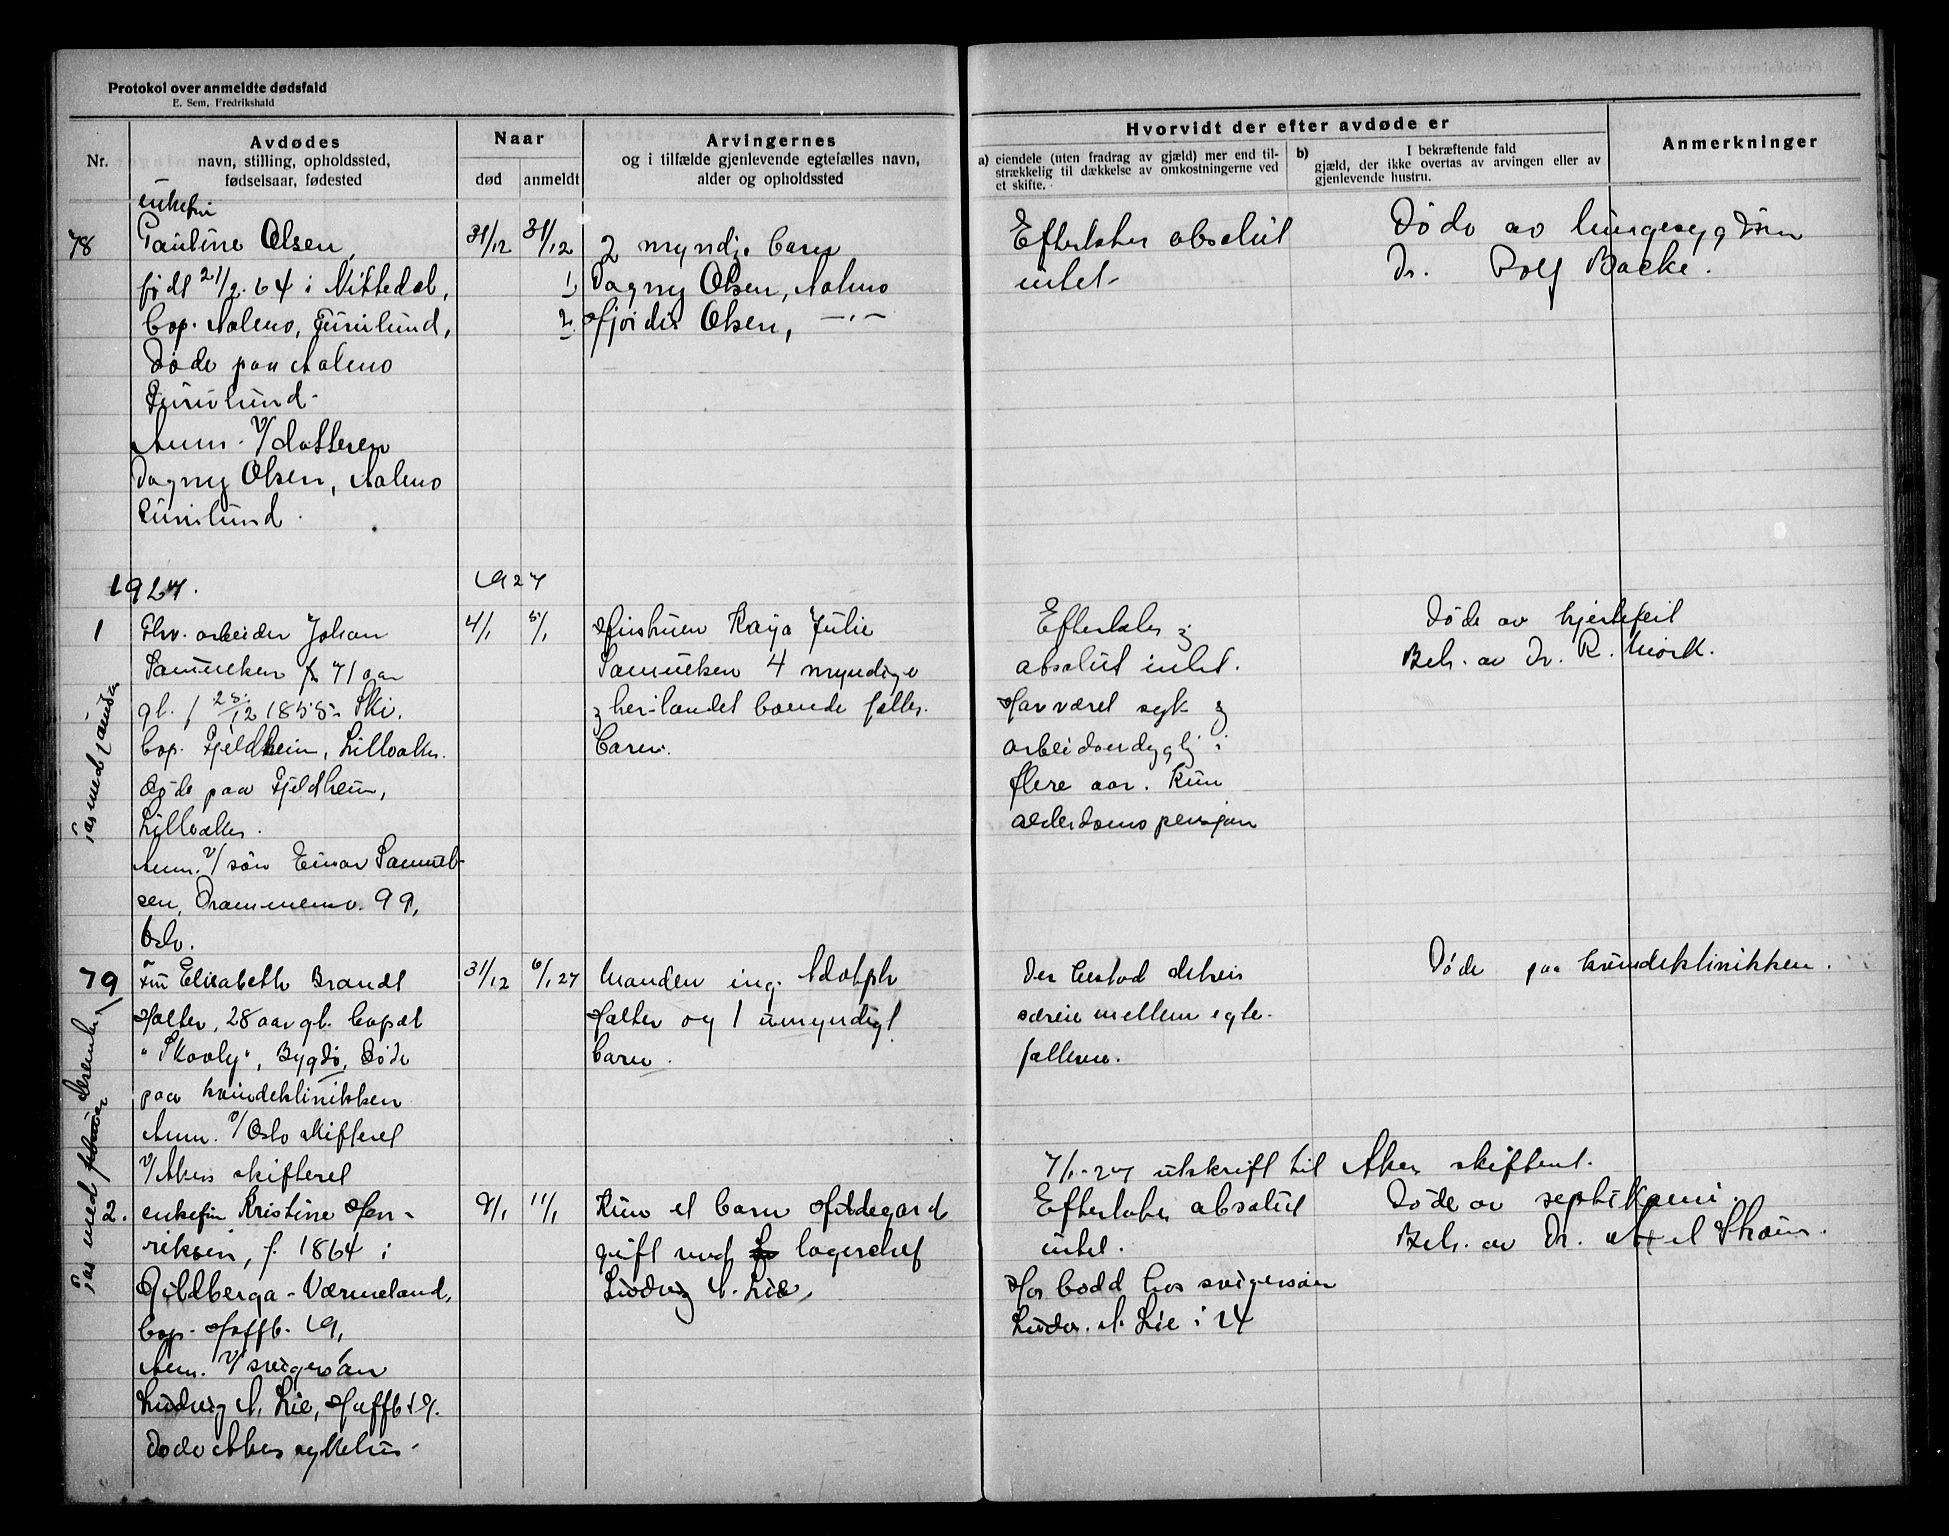 Protokol over anmeldte dødsfald
E. Sem, Fredrikshald
Nr.
Avdødes
navn, stilling, opholdssted,
fødselsaar, fødested
Naar
død
anmeldt
Arvingernes
og i tilfælde gjenlevende egtefælles navn,
alder og opholdssted
Hvorvidt der efter avdøde er
a) eiendele (uten fradrag av gjæld) mer end til-
strækkelig til dækkelse av omkostningerne ved
et skifte.
b) I bekræftende fald
gjæld, der ikke overtas av arvingen eller av
gjenlevende hustru.
Anmerkninger
78
enkefru
Pauline Olsen,
født 21/2.64 i Nittedal,
bop. Aalmo, Furulund,
Døde paa Aalmo
Furulund.
Anm. v/datteren
Dagny Olsen, Aalmo
Furulund.
31/12
31/12
2 myndi. barn
1) Dagny Olsen, Aalmo
2) Hjørdis Olsen, —"—
Efterlater absolut
intet.
Døde av lungesygdom
Dr. Rolf Backe.
1927.
1927
1
Fhv. arbeider Johan
Samuelsen 71 aar
gl. f 25/12 1855 Ski.
bop. Fjeldheim, Lilleaker.
Døde paa Fjeldheim,
Lilleaker.
Anm. v/søn Einar Samuel-
sen, Drammensv. 99,
Oslo.
4/1
5/1
Hustruen Kaja Julie
Samuelsen 4 myndige
og her i landet boende fælles
barn.
Efterlater
absolut intet.
Har været syk og
arbeidsudygtig i
flere aar. Kun
alderdomspensjon
Døde av hjertefeil
Beh. av Dr. R. Mork.
Tas med januar
79
Fru Elisabeth Brandt
Holter, 28 aar gl. bopæl
"Skovly", Bygdø, Døde
paa kvindeklinikken
Anm. v/Oslo skifteret
v/Akers skifteret
31/12
6/1 27
Manden ing. Adolph
Holter og 1 umyndigt
barn.
Der bestod delvis
særeie mellem egte-
fællerne.
Døde paa kvindeklinikken.
7/1-27 utskrift til Aker skifteret.
Tas med desember
2.
enkefru Kristine Hen-
riksen, f. 1864 i
Gildberga - Värmeland,
bop. Hoffb. 19,
Anm. v/svigersøn
Ludvig A. Lie, Hoffb. 19.
Døde Akers sykehus.
9/1
11/1
Kun et barn Hildegard
gift med lagerchef
Ludvig A. Lie,
Efterlater absolut
intet.
Har bodd hos svigersøn
Ludv. A. Lie i 24
Døde av septikæmi.
Beh. av Dr. Axel Strøm.